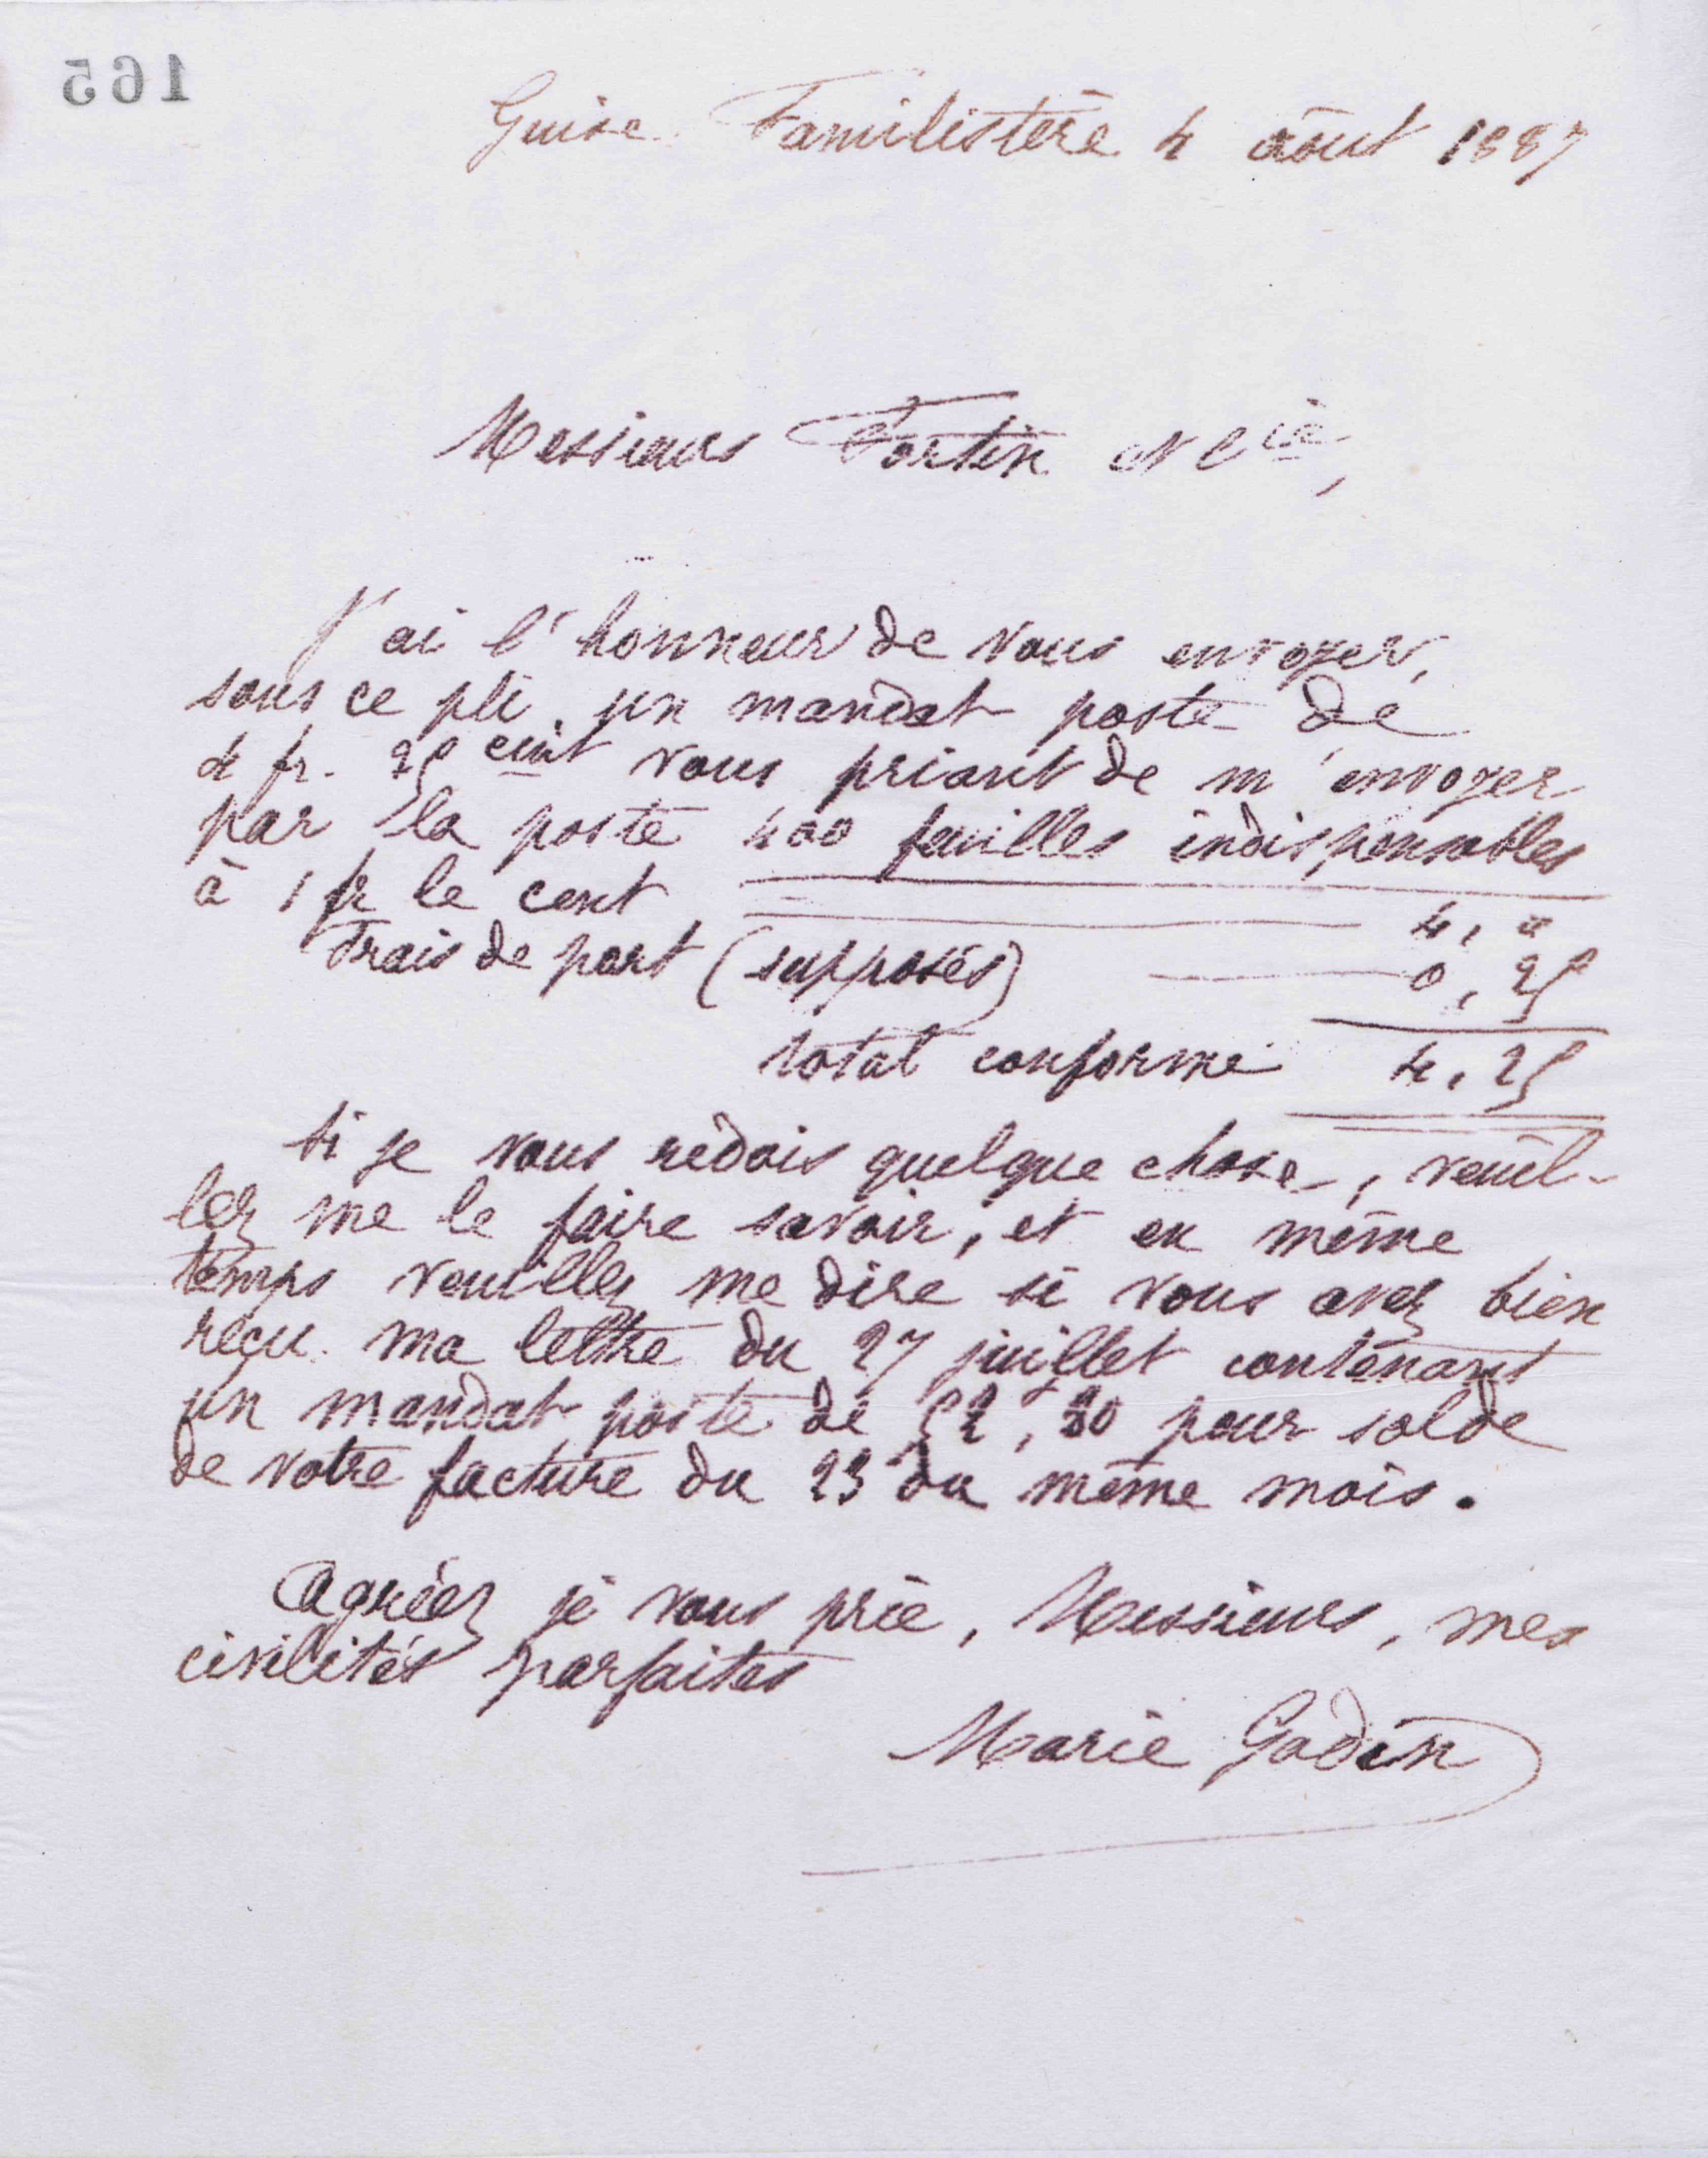 165
Guise Familistère 4 août 1887
Messieurs Fortin et Cie,
J'ai l'honneur de vous envoyer,
sous ce pli, un mandat poste de
4 fr. 25 cent vous priant de m'envoyer
par la poste 400 feuilles indispensables
à 1 fr le cent 4, "
Frais de port (supposés) 0,25
total conforme 4,25
Si je vous redois quelque chose, veuil-
lez me le faire savoir, et en même
temps veuillez me dire si vous avez bien
reçu ma lettre du 27 juillet contenant
un mandat poste de 52,30 pour solde
de votre facture du 23 du même mois.
Agréez je vous prie, Messieurs, mes
civilités parfaites
Marie Godin